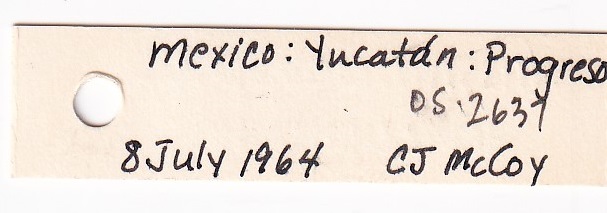 Mexico: Yucatán: Progreso
OS.2637
8 July 1964 CJ McCoy